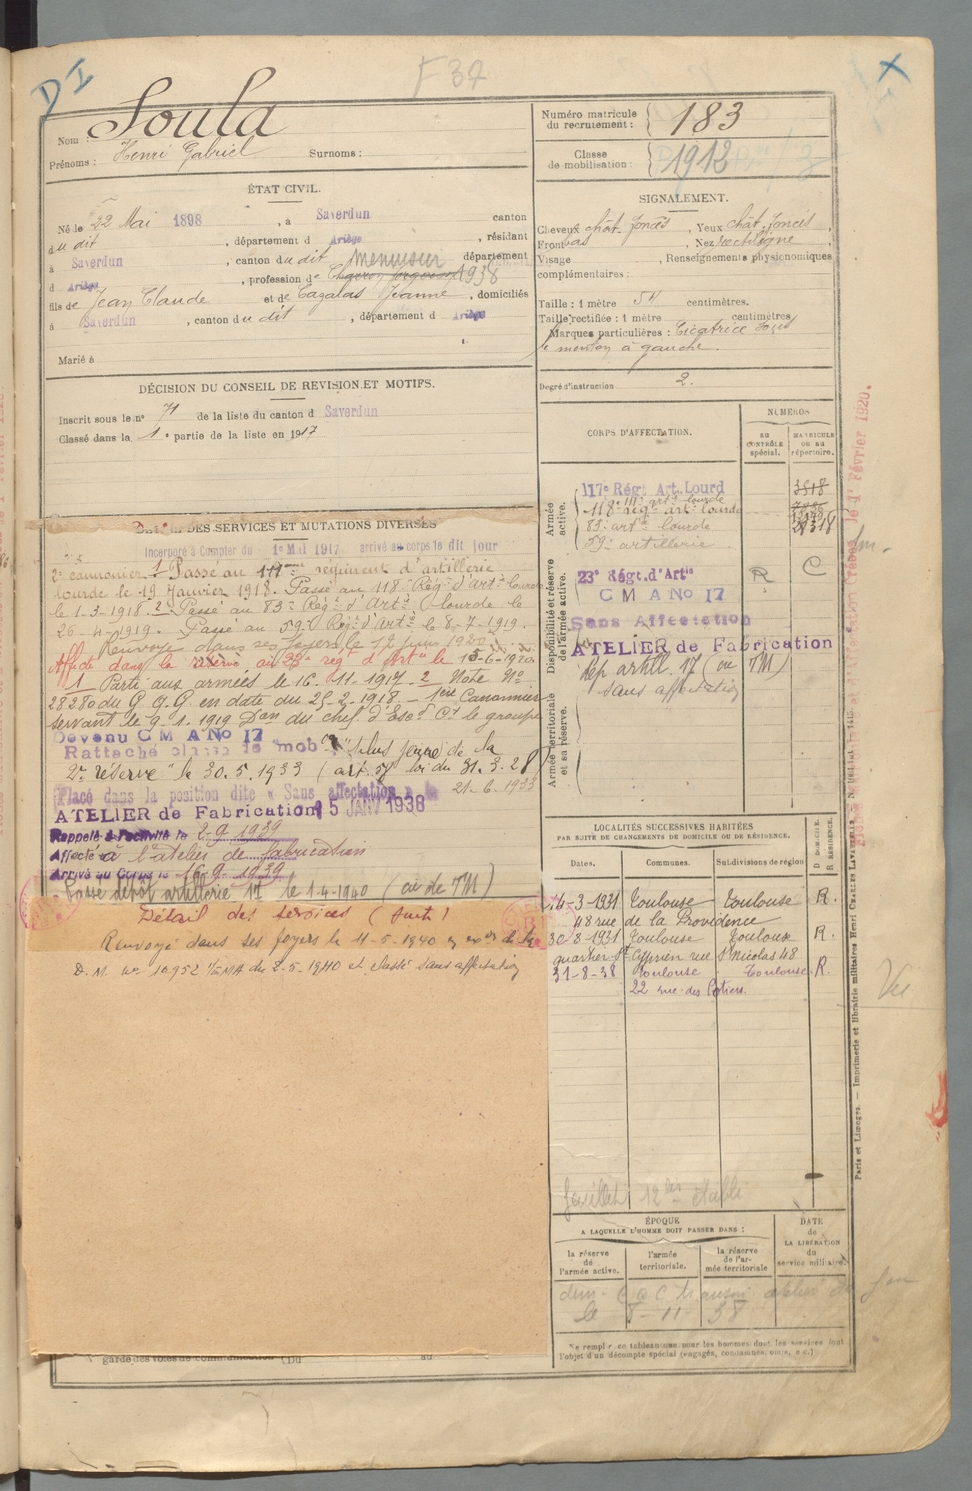 D I
F 37
X
Nom : Soula
Prénoms : Henri Gabriel Surnoms :
Numéro matricule du recrutement : 183
Classe de mobilisation : 1912
ÉTAT CIVIL.
Né le 22 Mai 1898, à Saverdun canton
du dit, département d Ariège, résidant
à Saverdun, canton du dit département
Menuisier
d Ariège, profession de 1938
fils de Jean Claude et de Cazalas Jeanne, domiciliés
à Saverdun, canton du dit, département d Ariège
Marié à
SIGNALEMENT.
Cheveux chât. foncés, Yeux chât. foncés
Front bas, Nez rectiligne
Visage , Renseignements physionomiques
complémentaires :
Taille : 1 mètre 54 centimètres.
Taille rectifiée : 1 mètre centimètres
Marques particulières : Cicatrice sous
le menton à gauche.
Degré d'instruction 2.
DÉCISION DU CONSEIL DE REVISION ET MOTIFS.
Inscrit sous le n° 71 de la liste du canton d Saverdun
Classé dans la 1e partie de la liste en 1917
DÉTAIL DES SERVICES ET MUTATIONS DIVERSES
Incorporé à Compter du 1e Mai 1917 arrivé au corps le dit jour
2e canonnier 1 Passé au 117ème régiment d'artillerie
lourde le 19 Janvier 1918. Passé au 118e Rég. d'Art. lourde
le 1-3-1918. 2 Passé au 83e Rég. d'Art. lourde le
26-4-1919. Passé au 59e Rég. d'Art. le 8-7-1919.
Renvoyé dans ses foyers le 12 Juin 1920
Affecté dans la réserve au rég. d'Art. le 15-6-1920
1 Parti aux armées le 16-11-1917 - 2 Note N°
28280 du G.Q.G en date du 25-2-1918 - 1ère Canonnier
servant le 9-1-1919 Don du chef d'Esc. Ct le groupe
Devenu C M A No 17
Rattaché classe de mob "plus jeune" de la
2e réserve" le 30.5.1933 (art. 57 loi du 31.3.28)
Placé dans la position dite « Sans affectation » le 21-6-1933
ATELIER de Fabrication 15 JANV 1938
Rappelé à l'activité le 2-9 1939
Affecté à l'atelier de fabrication
Arrivé au Corps le 16-9-1939
Passe dépôt artillerie 17 le 1-4-1940 (ou de TM)
Détail des services (suite)
Renvoyé dans ses foyers le 4-5-1940 en de la
D.M. No 10952 1/EMA du 2-5-1940 et classé sans affectation
CORPS D'AFFECTATION.
NUMÉROS
AU CONTRÔLE spécial.
MATRICULE ou au répertoire.
Armée active.
117e Régt Art. Lourd
118e rég. art. lourde
83e art. lourde
59e artillerie
Disponibilité et réserve de l'armée active.
23e Régt. d'Artie R C
C M A No 17
Sans Affectation
ATELIER de Fabrication
Dep artill. 17 (ou TM)
sans affectation
Armée territoriale et sa réserve.
LOCALITÉS SUCCESSIVES HABITÉES
PAR SUITE DE CHANGEMENTS DE DOMICILE OU DE RÉSIDENCE.
Dates. Communes. Subdivisions de région D DOMICILE. R RÉSIDENCE.
14-3-1931 Toulouse Toulouse R.
48 rue de la Providence
30-8-1931 Toulouse Toulouse R.
quartier St Cyprien rue St Nicolas 48
31-8-38 Toulouse Toulouse R.
22 rue des Potiers.
ÉPOQUE
A LAQUELLE L'HOMME DOIT PASSER DANS :
la réserve de l'armée active. l'armée territoriale. la réserve de l'armée territoriale
DATE de LA LIBÉRATION du service militaire.
le 8-11-38
Ne remplir ce tableau que pour les hommes dont les services font
l'objet d'un décompte spécial (engagés, condamnés, omis, etc.)
garde des voies de communication (Du au
Vu
Paris et Limoges. — Imprimerie et librairie militaires Henri CHARLES-LAVAUZELLE